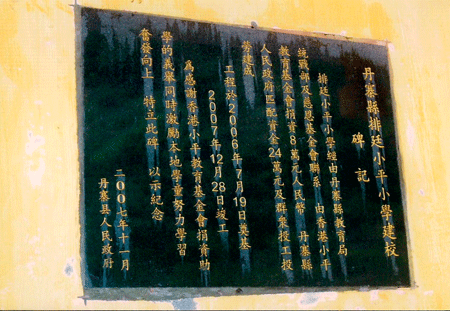 丹寨縣排廷小平小學建校
碑記
排廷小平小學經由丹寨縣教育局
統戰部及慈恩基金會聯系 由香港小平
教育基金會捐資8萬元人民幣 丹寨縣
人民政府匹配資金24萬元及群衆投工投
勞建成
工程於2006年7月19日奠基
2007年12月28日竣工
爲感謝香港小平教育基金會捐資助
學的義舉同時激勵本地學童努力學習
奮發向上 特立此碑 以示紀念
二00七年十一月
丹寨县人民政府